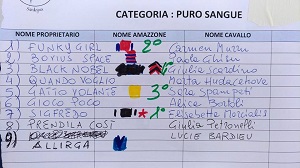 CATEGORIA : PURO SANGUE
NOME PROPRIETARIO NOME AMAZZONE NOME CAVALLO
1) FUNKY GIRL 2° Carmen
2) BORIUS SPACE Paola
3) BLACK NOBEL 4° Giulia Scardino
4) QUANDO VOGLIO Marta
5) GATTO VOLANTE 3° Sara Spampati
6) GIOCO POCO Alice Bortoli
7) SIGFREDO 1° Elisabetta
8) PRENDILA COSI' Giulia Petronelli
9) ALLIRGA LUCIE BARDIEU